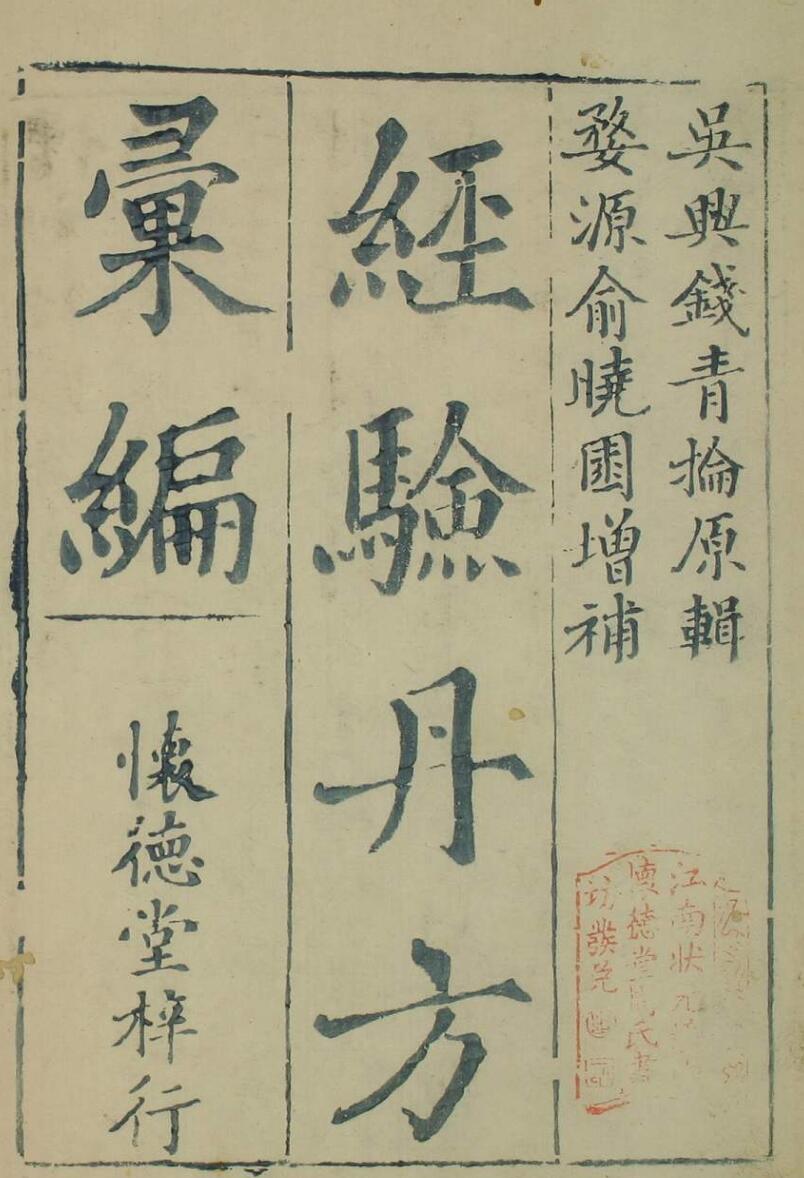 吳興錢青掄原輯
婺源俞曉園增補
經驗丹方
彙編
懷德堂梓行
江南狀元
懷德堂周氏書
坊發兌